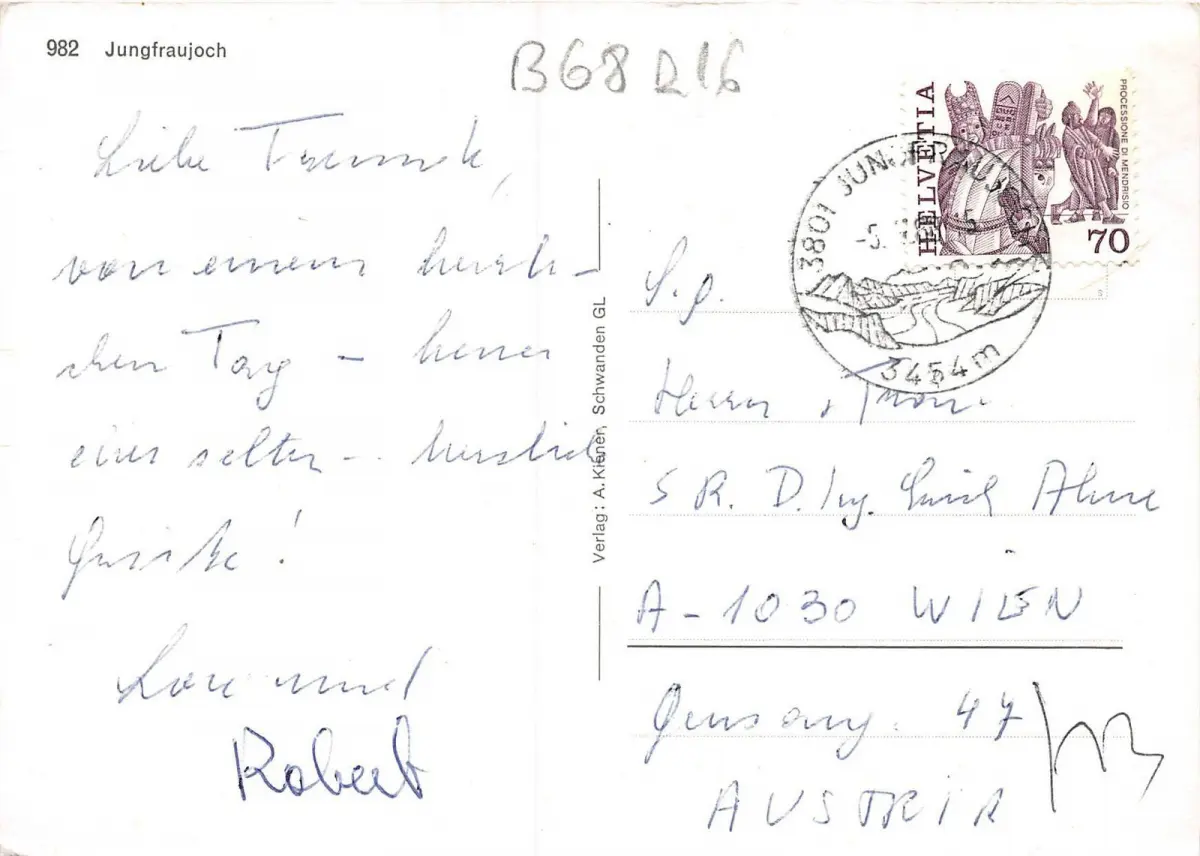 982 Jungfraujoch
B68 R16
Liebe Freunde,
von einem herrli-
chen Tag –
einer selten – herzlich
Grüße!
Lore und
Robert
Verlag: A. Kiener, Schwanden GL
HELVETIA
PROCESSIONE DI MENDRISIO
70
3801 JUNGFRAUJOCH
-5.
3454m
S.g.
Herrn
SR. D. Ing. Erich
A-1030 WIEN
47
AUSTRIA